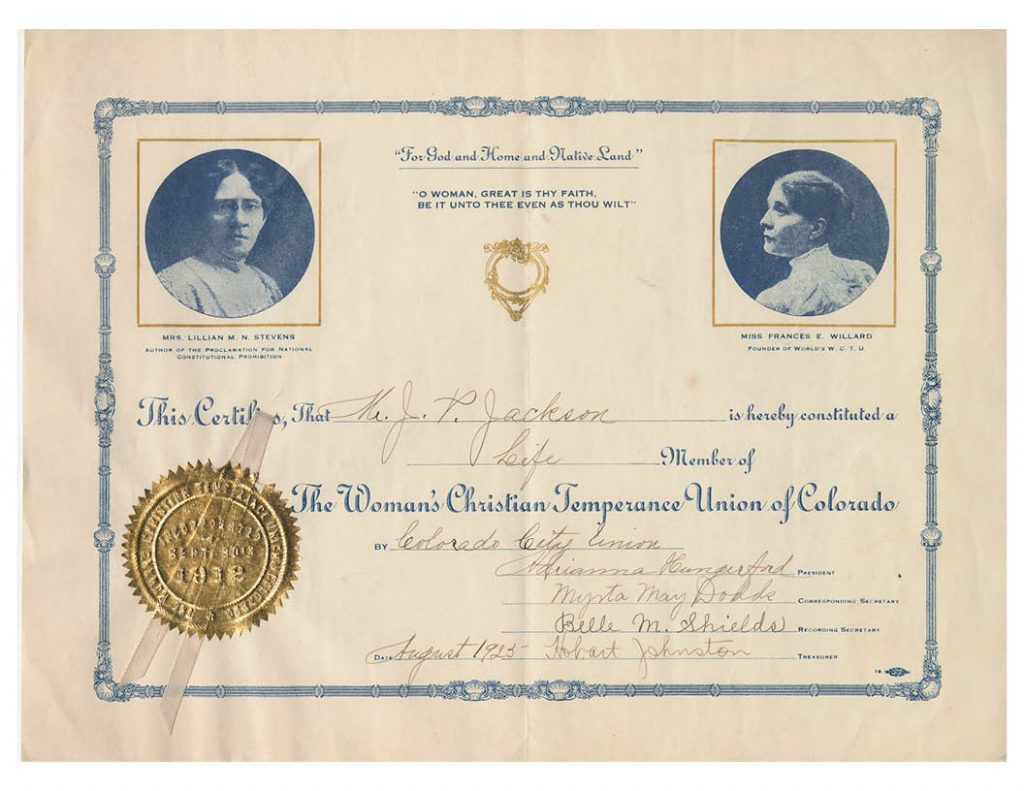 "For God and Home and Native Land"
"O WOMAN, GREAT IS THY FAITH,
BE IT UNTO THEE EVEN AS THOU WILT"
MRS. LILLIAN M. N. STEVENS
AUTHOR OF THE PROCLAMATION FOR NATIONAL
CONSTITUTIONAL PROHIBITION
MISS FRANCES E. WILLARD
FOUNDER OF WORLD'S W. C. T. U.
This Certifies, That Mr. J. P. Jackson is hereby constituted a
Life Member of
The Woman's Christian Temperance Union of Colorado
BY Colorado City Union
Adrianna Hungerford PRESIDENT
Myrta May Dodds CORRESPONDING SECRETARY
Belle M. Shields RECORDING SECRETARY
DATE August 1925 Hobart Johnston TREASURER
INCORPORATED
SEPT. 20TH
1912